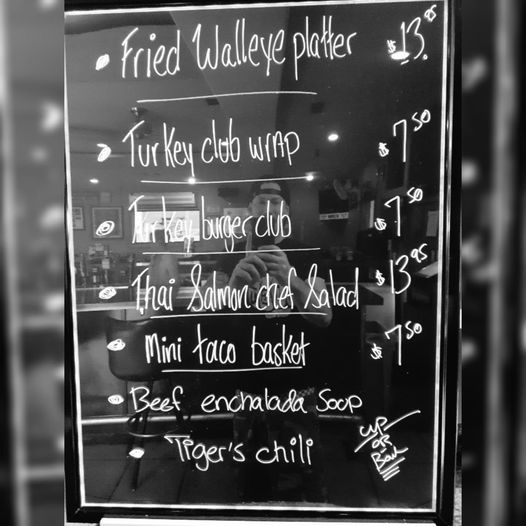 Fried Walleye platter $13.95
Turkey club wrap $7.50
Turkey burger club $7.50
Thai Salmon chef Salad $13.95
Mini taco basket $7.50
Beef enchalada Soup
Tiger's chili
cup
or
Bowl